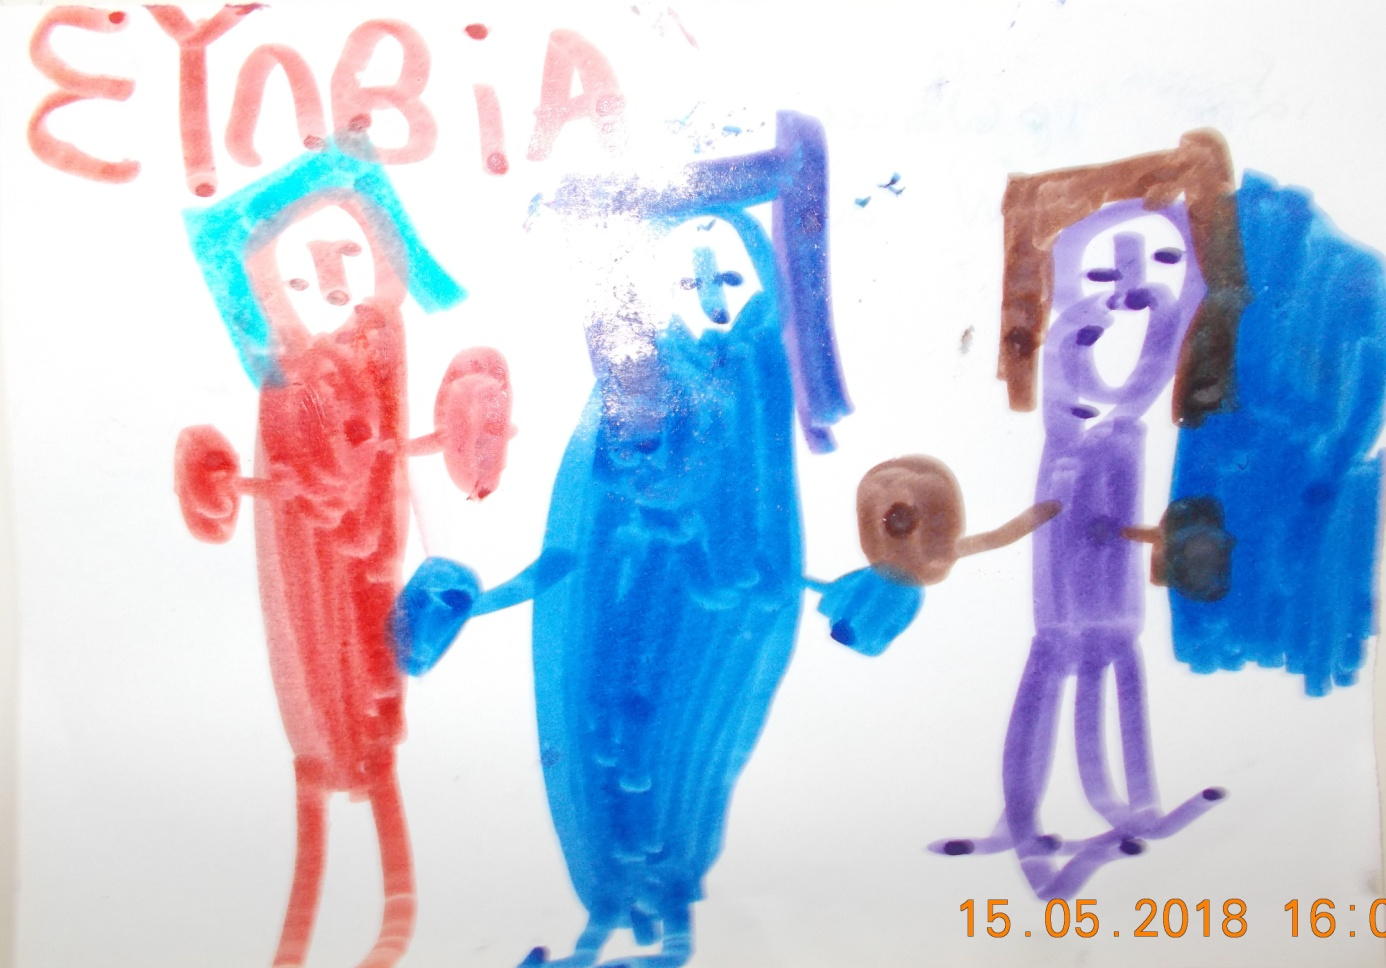 ΣΥΛΒiΑ
15.05.2018 16:0